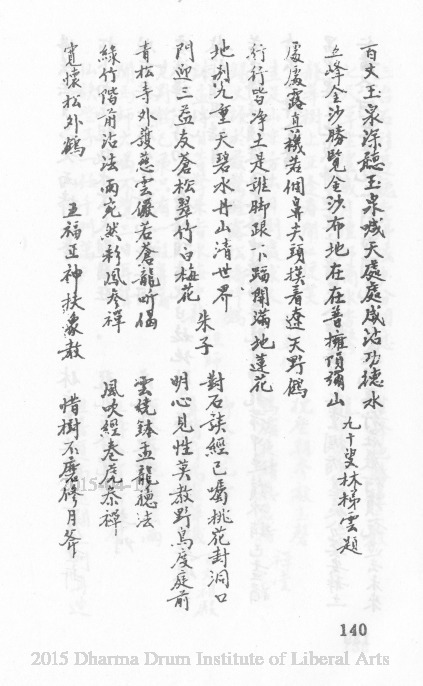 百丈玉泉深聽玉泉喊天處處咸沾功德水
五峰金沙勝覽金沙布地在在普擁須彌山
九十叟林梯雲題
處處露真機若個鼻尖頭摸着遼天野鶴
行行皆淨土是誰脚跟下踏開滿地蓮花
地判沈重天碧水丹山清世界
門迎三益友蒼松翠竹白梅花
朱子
青松寺外護慈雲儼若蒼龍听偈
綠竹階前沾法雨宛然彩鳳參禪
寬懷松外鶴
五福正神扶象教
對石談經已囑桃花封洞口
明心見性莫教野鳥度庭前
雲繞鉢盂龍聽法
風吹經卷虎參禪
惜樹不磨修月斧
2015-04-1
140
2015 Dharma Drum Institute of Liberal Arts